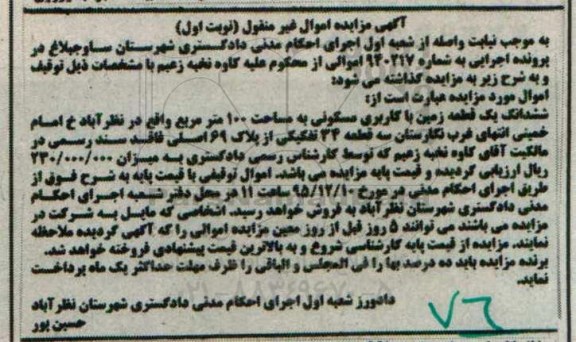 آگهی مزایده اموال غیر منقول (نوبت اول)
به موجب نیابت واصله از شعبه اول اجرای احکام مدنی دادگستری شهرستان ساوجبلاغ در
پرونده اجرایی به شماره ۹۳۰۲۱۷ اموالی از محکوم علیه کاوه نخبه زعیم با مشخصات ذیل توقیف
و به شرح زیر به مزایده گذاشته می شود:
اموال مورد مزایده عبارت است از:
ششدانگ یک قطعه زمین با کاربری مسکونی به مساحت ۱۰۰ متر مربع واقع در نظرآباد خ امام
خمینی انتهای غرب نگارستان سه قطعه ۲۴ تفکیکی از پلاک ۶۹ اصلی فاقد سند رسمی در
مالکیت آقای کاوه نخبه زعیم که توسط کارشناس رسمی دادگستری به میزان ۲۳۰/۰۰۰/۰۰۰
ریال ارزیابی گردیده و قیمت پایه مزایده می باشد. اموال توقیفی با قیمت پایه به شرح فوق از
طریق اجرای احکام مدنی در مورخ ۹۵/۱۲/۱۰ ساعت ۱۱ در محل دفتر شعبه اجرای احکام
مدنی دادگستری شهرستان نظرآباد به فروش خواهد رسید. اشخاصی که مایل به شرکت در
مزایده می باشند می توانند ۵ روز قبل از روز معین مزایده اموالی را که آگهی گردیده ملاحظه
نمایند. مزایده از قیمت پایه کارشناسی شروع و به بالاترین قیمت پیشنهادی فروخته خواهد شد.
برنده مزایده باید ده درصد بها را فی المجلس و الباقی را ظرف مهلت حداکثر یک ماه پرداخت
نماید.
دادورز شعبه اول اجرای احکام مدنی دادگستری شهرستان نظرآباد
حسین پور
۷۶